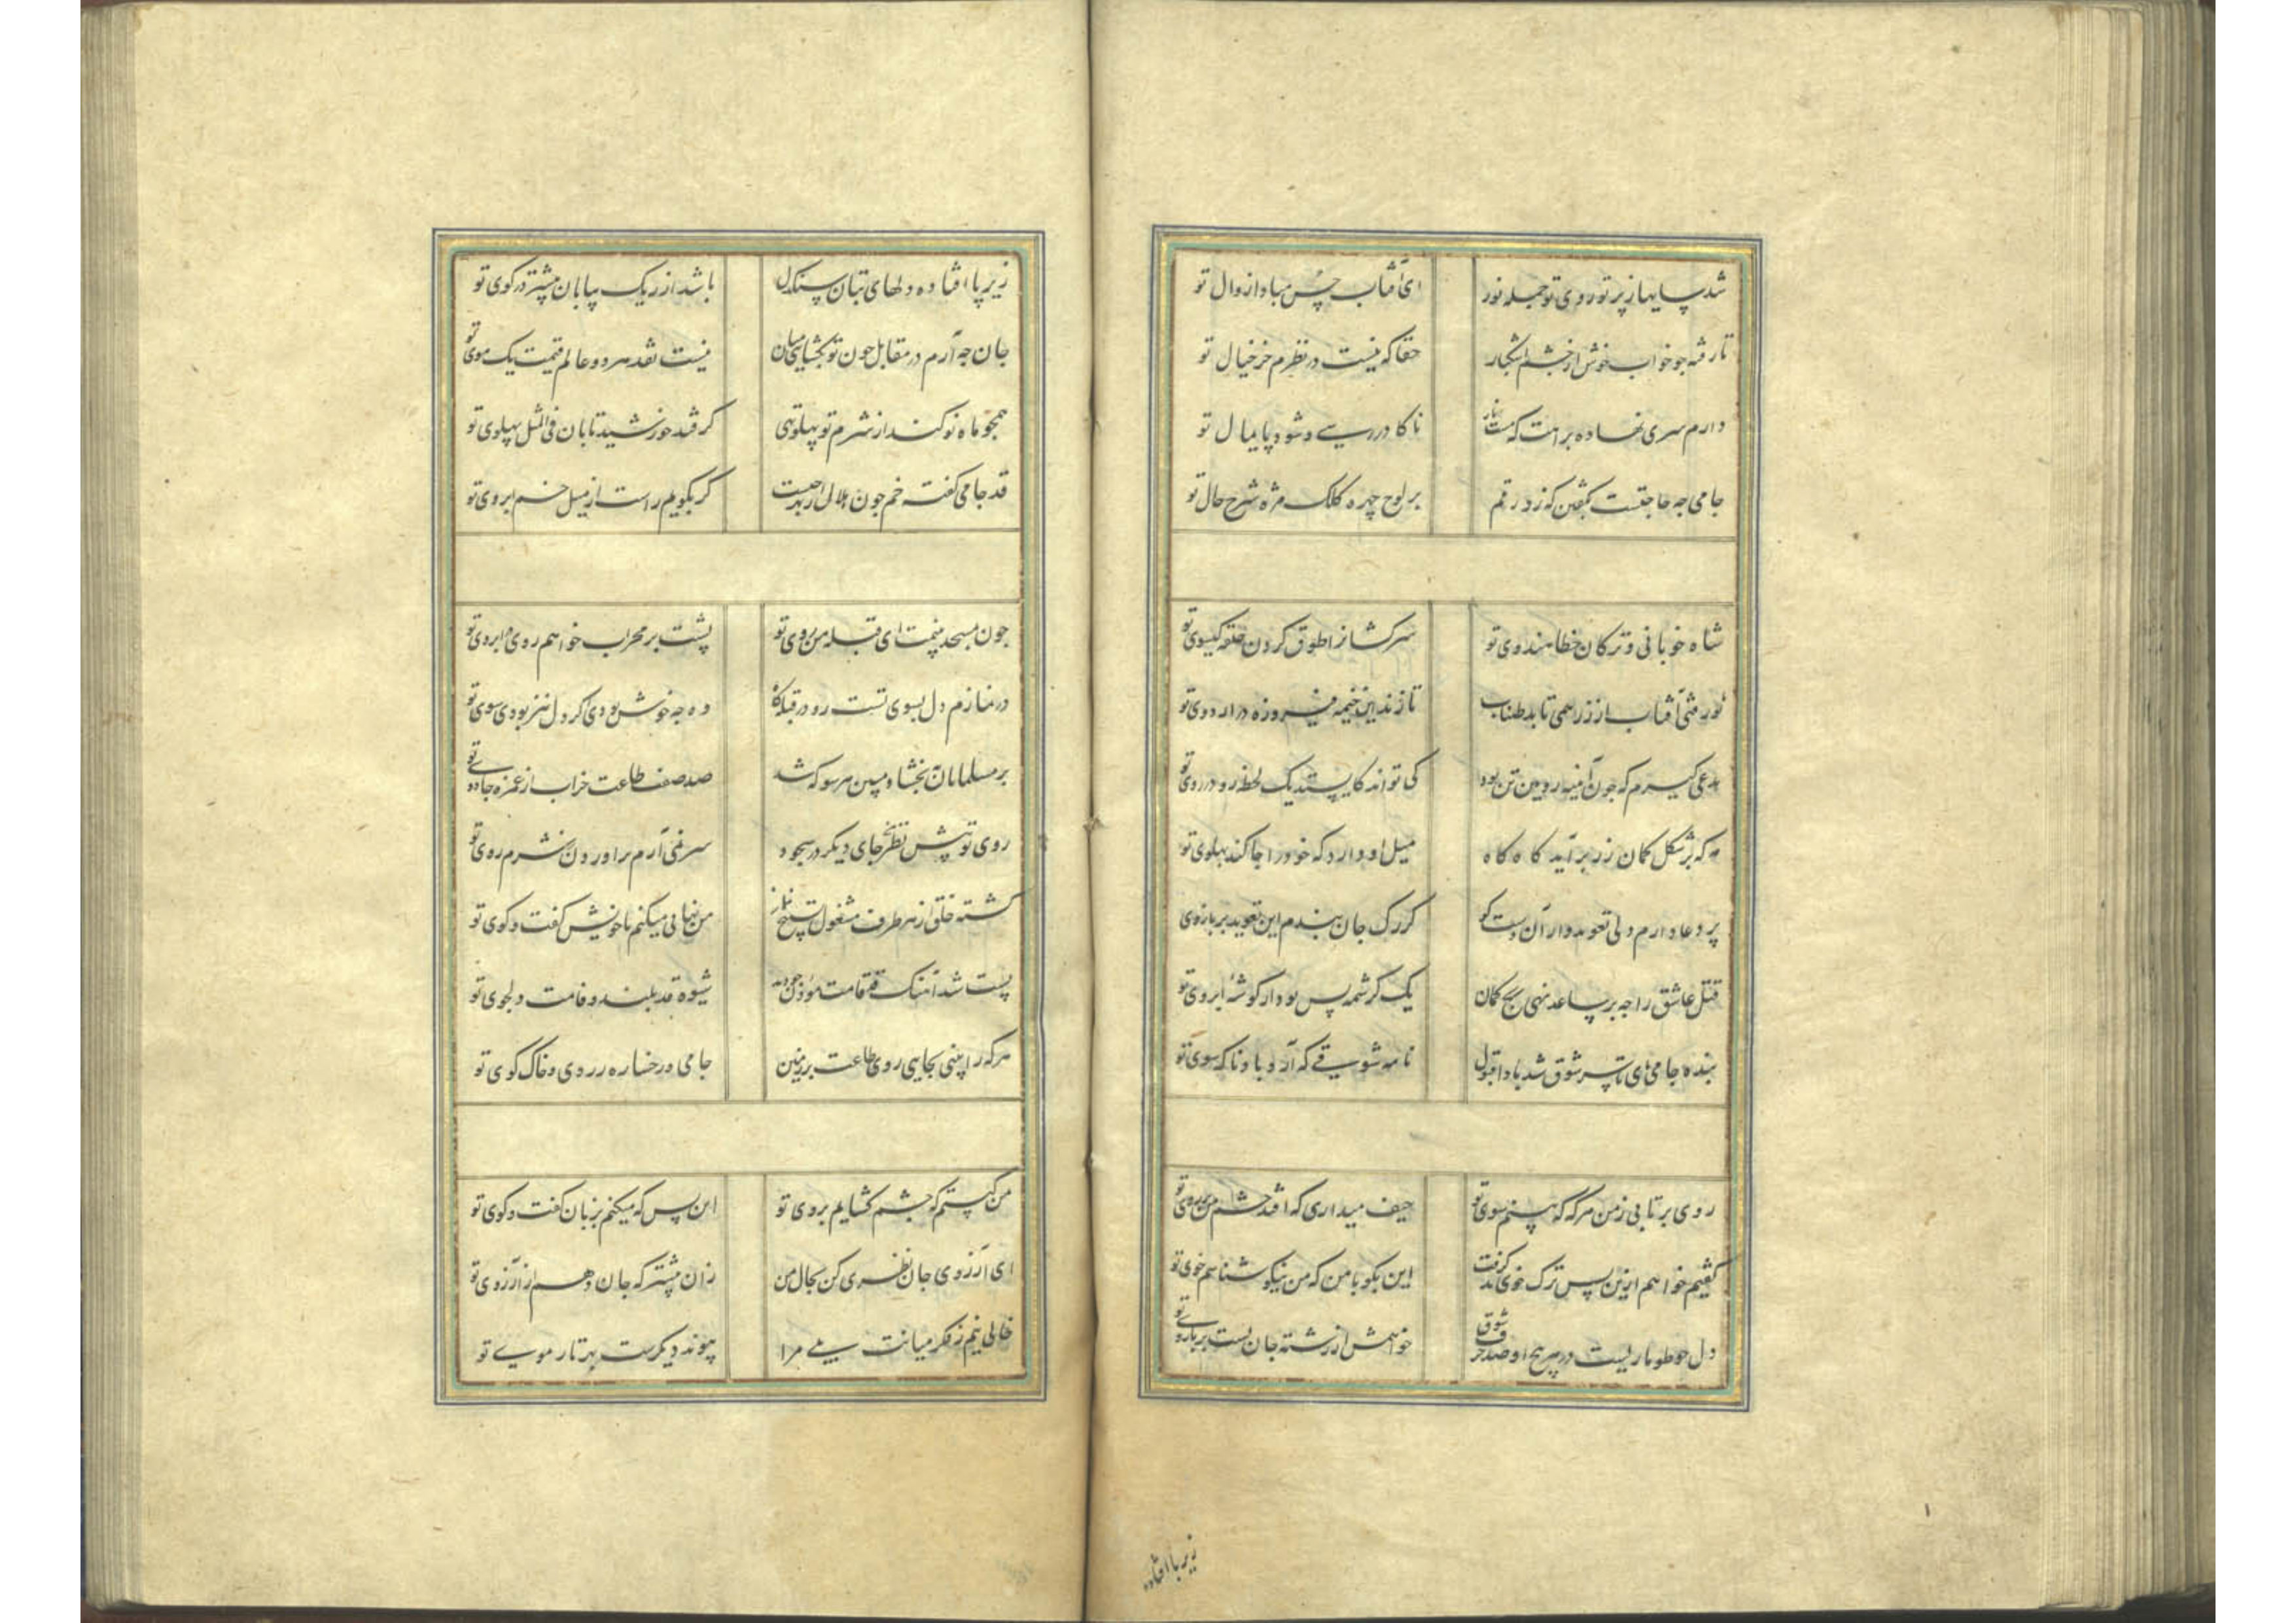 شد سایها ز پرتو روی تو جمله نور ای آفتاب حسن مبادا زوال تو
تا رفته جو خواب خوش از چشم اشکبار حقا که نیست در نظرم جز خیال تو
دارم سری نهاده براهت که مست ناز ناگاه در رسی و شود پایمال تو
جامی جه حاجتست بگفتن که زد رقم بر لوح چهره کلک مژه شرح حال تو
شاه خوبانی و ترکان خطا هندوی تو سرکشانرا طوق گردن حلقه گیسوی تو
نور فشان آفتاب از زر همی تابد طناب تا زند این خیمه فیروزه در اردوی تو
مدعی گیرم که جون آینه رویین تن بود کی تواند کایستد یک لحظه رو در روی تو
مه که بر شکل کمان زر برآید گاه گاه میل او دارد که خود را جا کند پهلوی تو
پر دعا دارم دلی تعویذوار آن دست کو کز رگ جان بندم این تعویذ بر بازوی تو
قتل عاشق را جه بر ساعد نهی رنج کمان یک کرشمه بس بود از گوشهٔ ابروی تو
بنده جامی های تا سر شوق شد بادا قبول نامه شوقی که آرد باد ناگه سوی تو
روی بر تابی ز من هرگه که بینم سوی تو حیف میداری که افتد چشم من بر روی تو
گفتیم خواهم ازین پس ترک خوی بد گرفت این بگو با من که من نیکو شناسم خوی تو
دل جو طوماریست در هر پیچ او صد حرف شوق خواهمش از رشته جان بست بر بازوی تو
زیر پا افتاده
زیر پا افتاده دلهای بتان سنگدل باشد از ریگ بیابان بیشتر در کوی تو
جان جه آرم در مقابل جون تو بگشایی میان نیست نقد هر دو عالم قیمت یک موی تو
همجو ماه نو کند از شرم تو پهلو تهی گر فتد خورشید تابان فی المثل پهلوی تو
قد جامی گفت خم جون هلال از بهر چیست گر بگویم راست از میل خم ابروی تو
جون بمسجد بینمت ای قبله من روی تو پشت بر محراب خواهم روی در ابروی تو
در نمازم دل بسوی تست رو در قبله گاه وه جه خوش بودی اگر دل نیز بودی سوی تو
بر مسلمانان ببخشا و مبین هر سو که شد صد صف طاعت خراب از غمزه جادوی تو
روی تو پیش نظر بر جای دیگر در سجود سر نمی آرم برآوردن ز شرم روی تو
گشته خلق از هر طرف مشغول تسبیح نماز من نهانی میکنم با خویش گفت و گوی تو
پست شد آهنگ قد قامت مؤذن جون بدید شیوه قد بلند و قامت دلجوی تو
هرکه را بینی بجایی روی طاعت بر زمین جامی و رخساره زردی و خاک کوی تو
من کیستم که چشم گشایم بروی تو این بس که میکنم بزبان گفت و گوی تو
ای آرزوی جان نظری کن بحال من زان پیشتر که جان دهم از آرزوی تو
خالی نیم ز فکر میانت بسی مرا پیوند دیگرست بهر تار موی تو